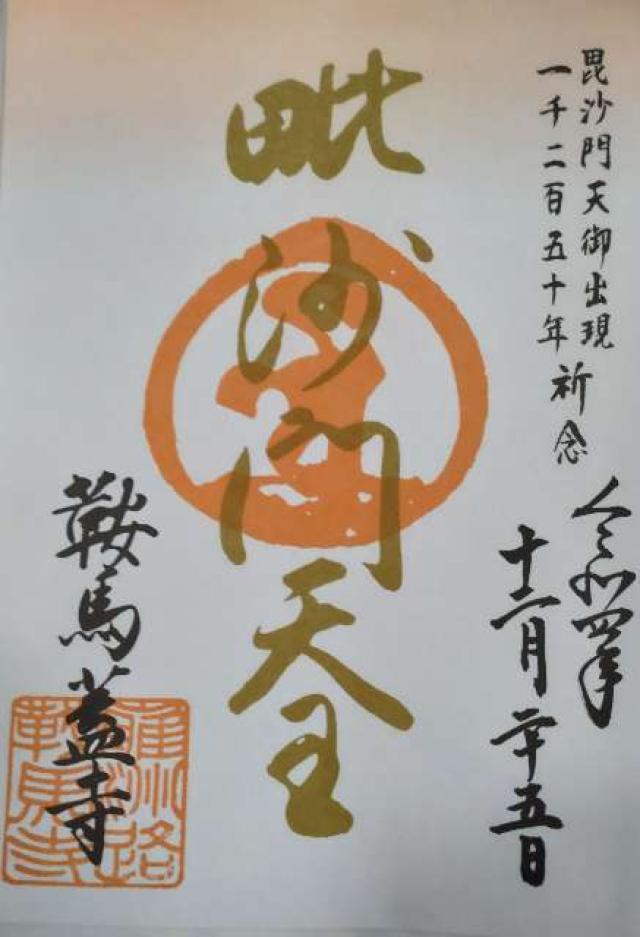 毘沙門天御出現
一千二百五十年祈念
令和四年
十二月二十五日
毗沙門天王
鞍馬蓋寺